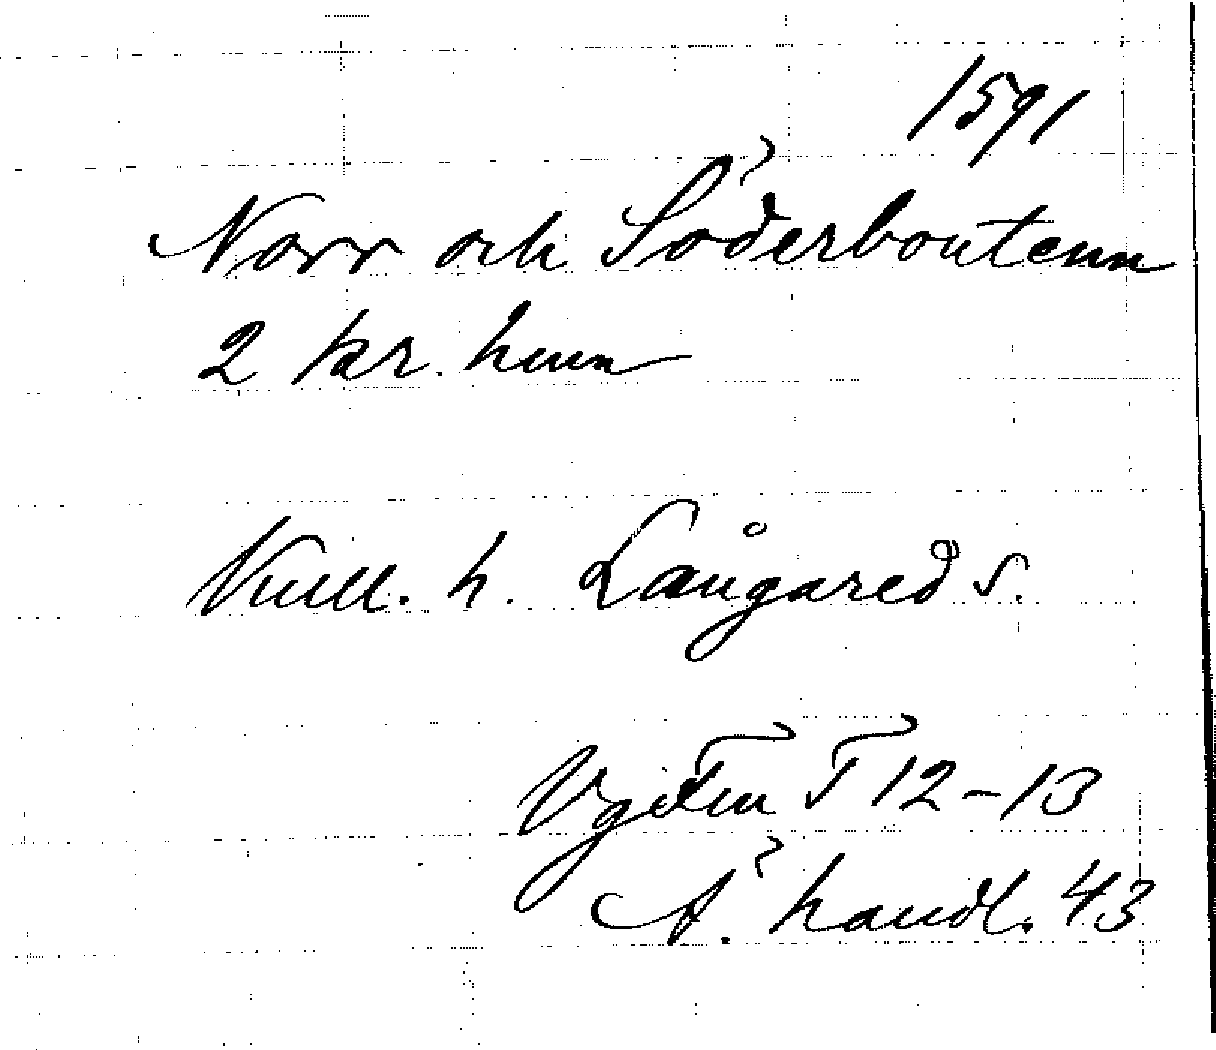 1591
Norr och Söderboutenn
2 kr. hmn
Kull. h. Långared s.
Vg T 12-13
Ä. handl. 43